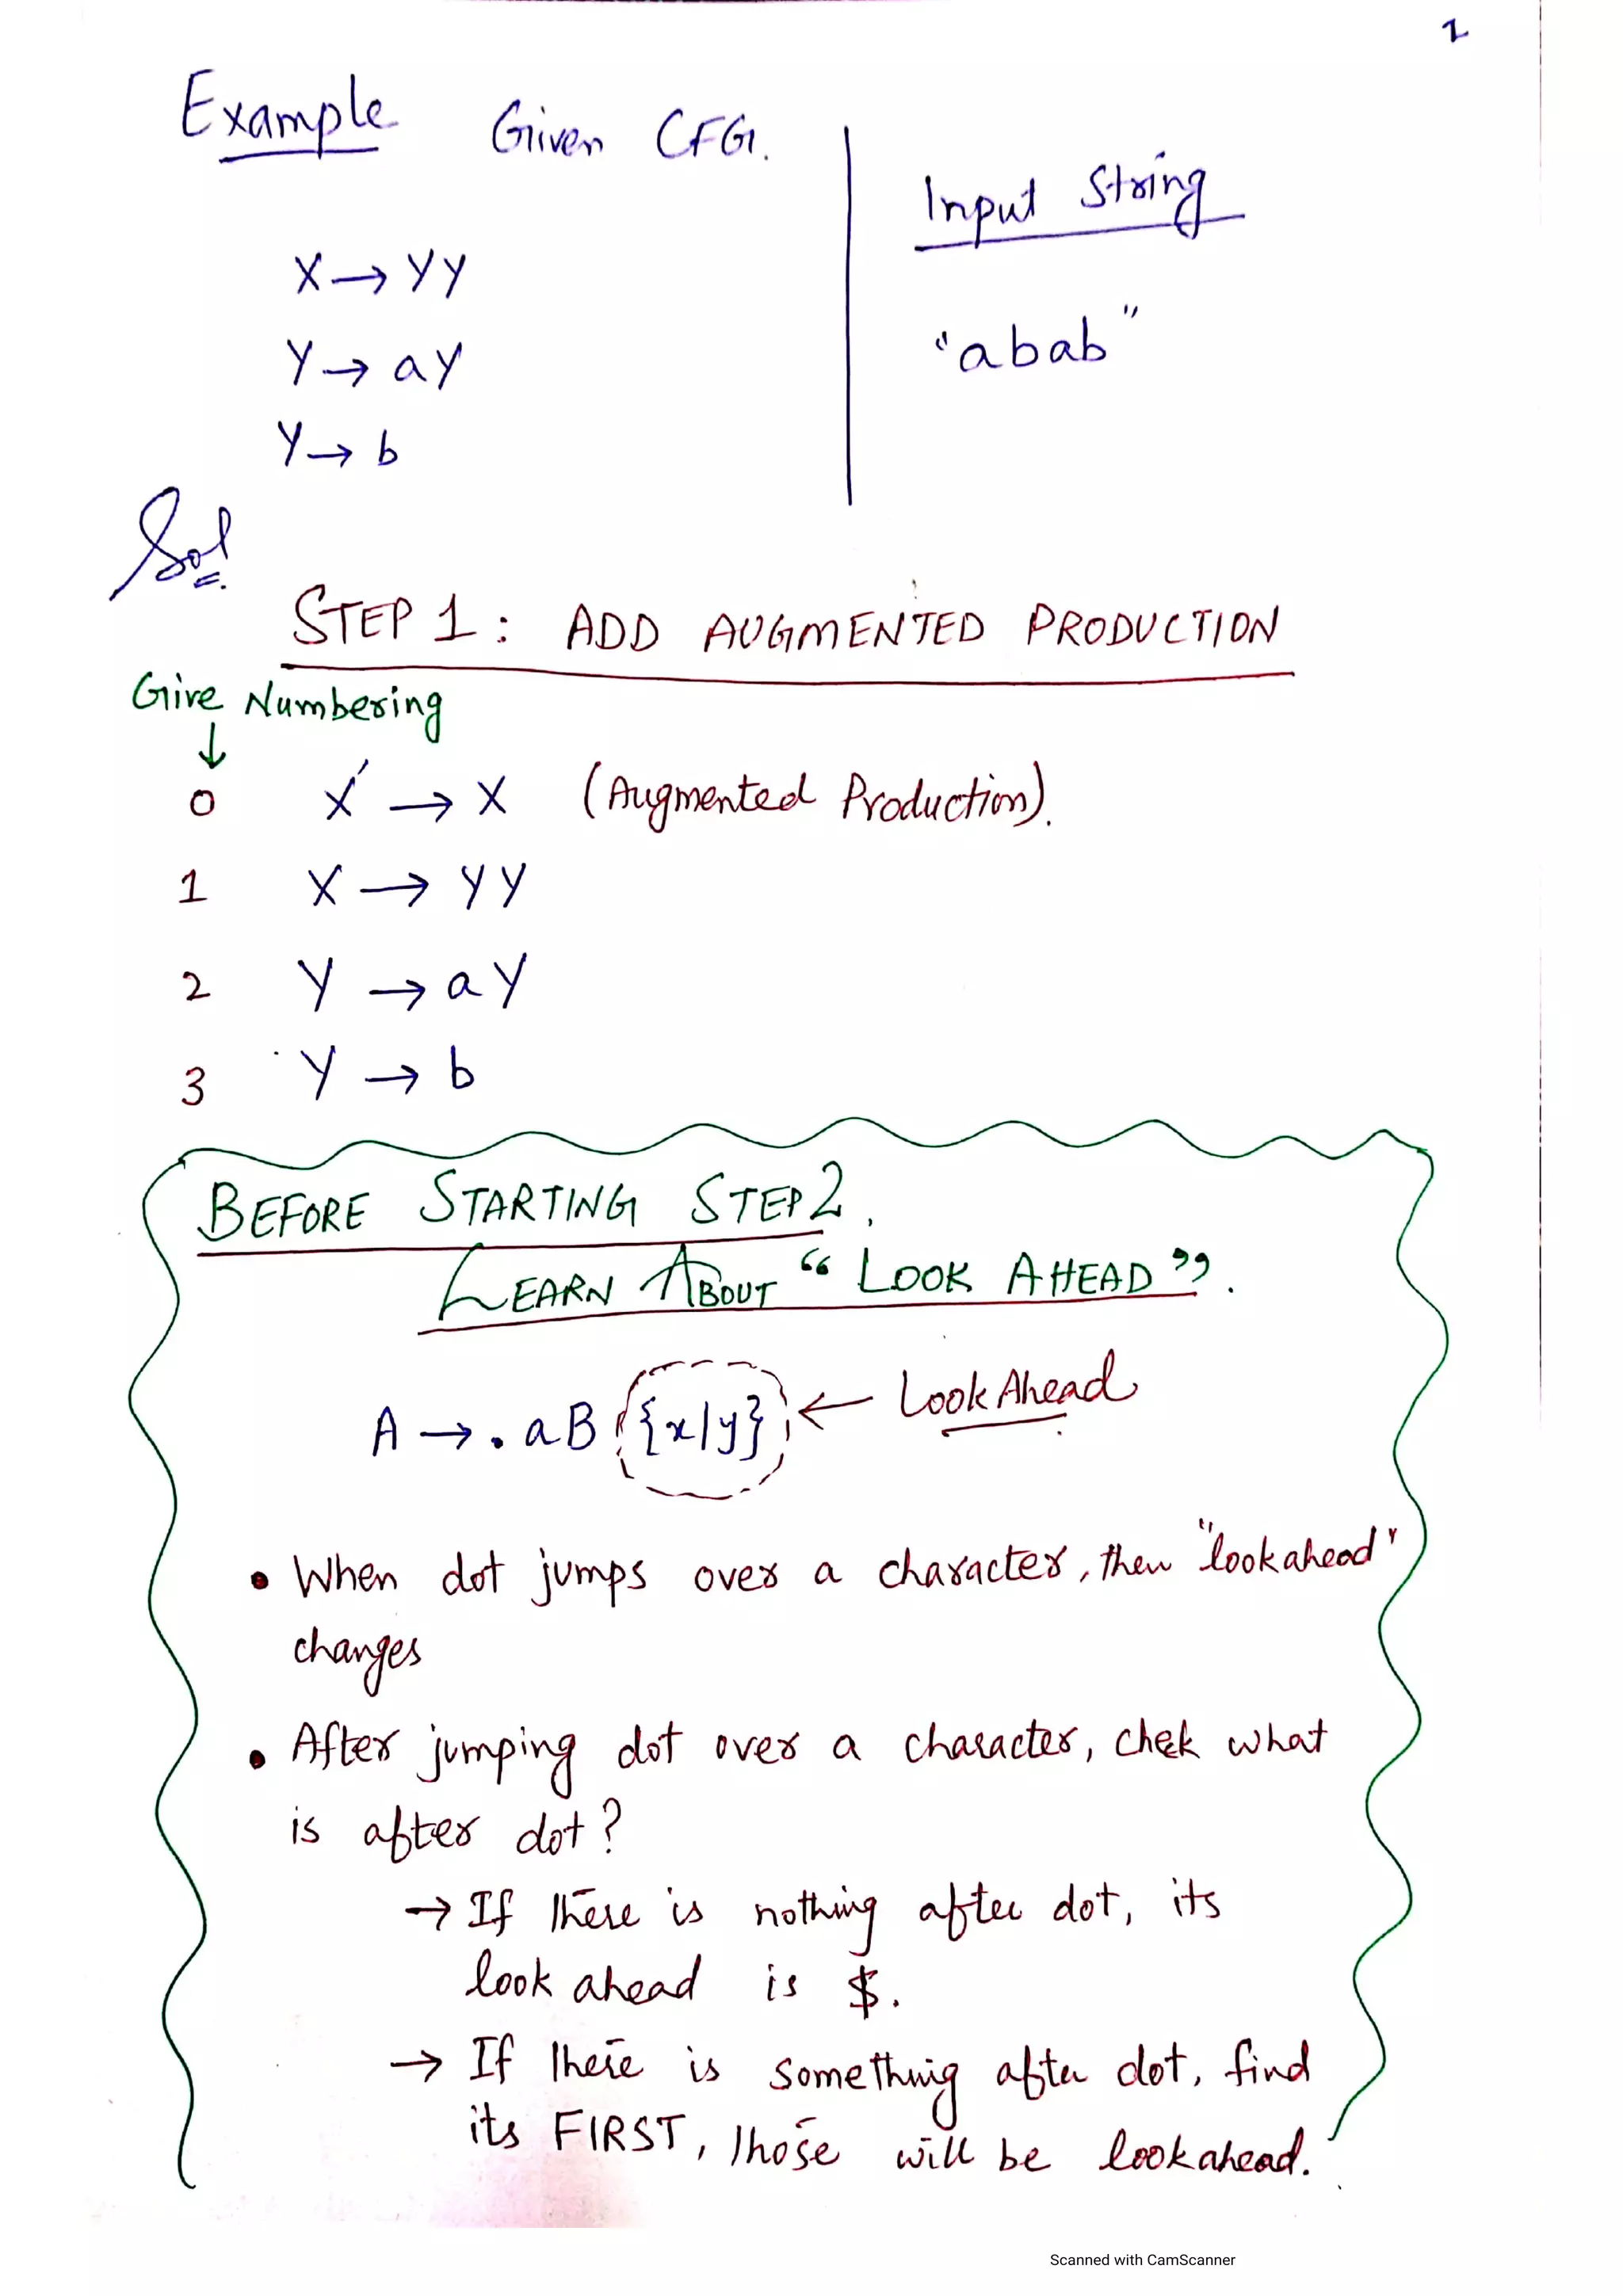 2
Example Given CFG.
Input String
X → YY
Y → aY
"abab"
Y → b
Sol.
STEP 1: ADD AUGMENTED PRODUCTION
Give Numbering
↓
0 X' → X (Augmented Production).
1 X → YY
2 Y → aY
3 Y → b
BEFORE STARTING STEP 2.
LEARN ABOUT "LOOK AHEAD".
A → .aB {x/y} ← Look Ahead
• When dot jumps over a character, then "lookahead"
changes
• After jumping dot over a character, chek what
is after dot?
→ If there is nothing after dot, its
look ahead is $.
→ If there is something after dot, find
its FIRST, those will be lookahead.
Scanned with CamScanner